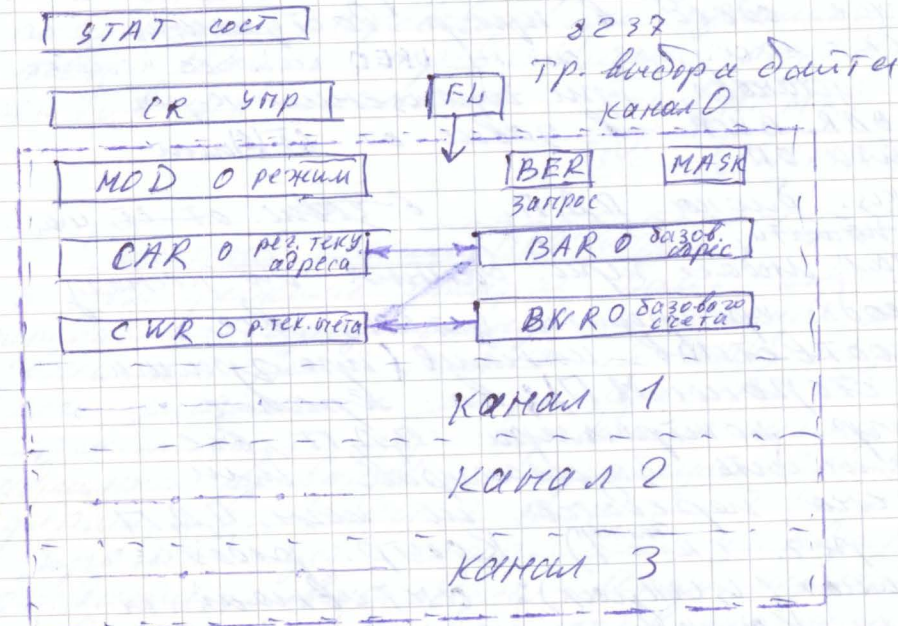 STAT сост
8237
тр. выбора байта
CR упр
FL
канал 0
MOD 0 режим
BER
MASK
запрос
CAR 0 рег. теку. адреса
BAR 0 базов. адрес
CWR 0 р. тек. счёта
BWR 0 базового счета
канал 1
канал 2
канал 3